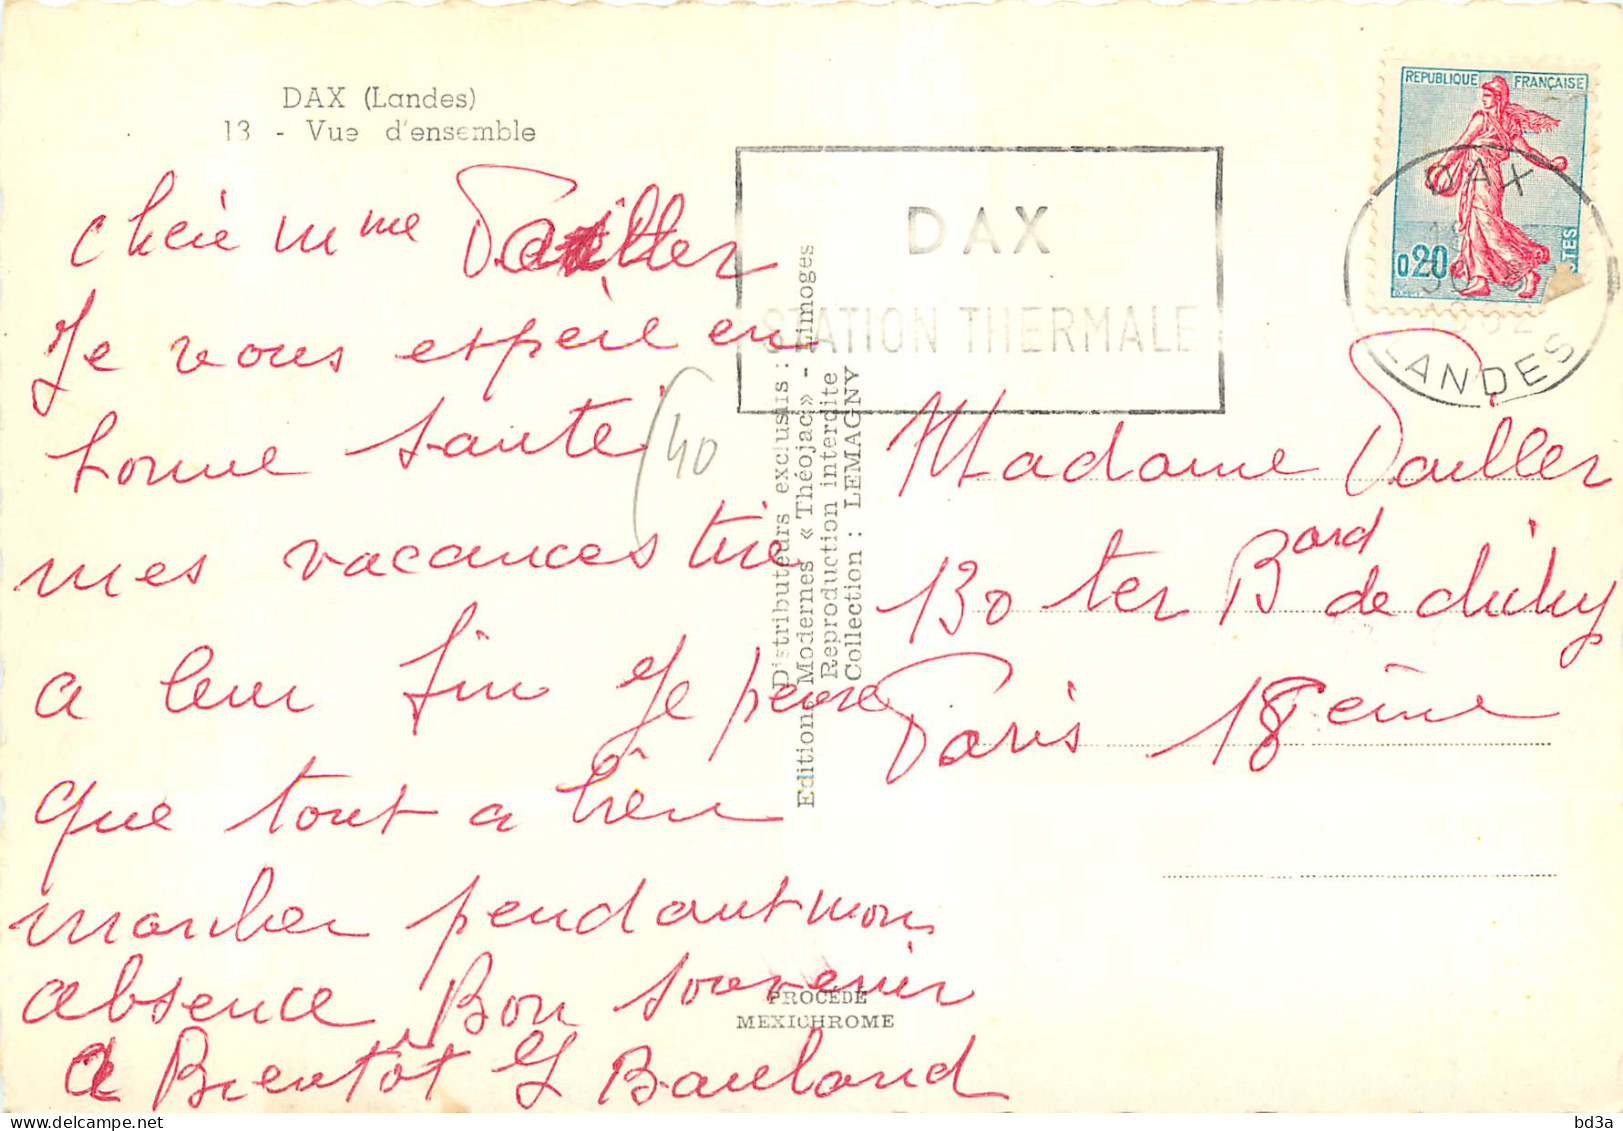 DAX (Landes)
13 - Vue d'ensemble
chère Mme Pailler
Je vous espère en
bonne santé
mes vacances tire
a leur fin Je pense
que tout a bien
marcher pendant mon
absence Bon souvenir
a Bientôt
(40
Distributeurs exclusifs :
Editions Modernes « Théojac » - Limoges
Reproduction interdite
Collection : LEMAGNY
PROCÉDÉ
MEXICHROME
DAX
STATION THERMALE
REPUBLIQUE FRANÇAISE
0,20
DAX
1962
LANDES
Madame Pailler
130 ter Bard de clichy
Paris 18 ème
bd3a